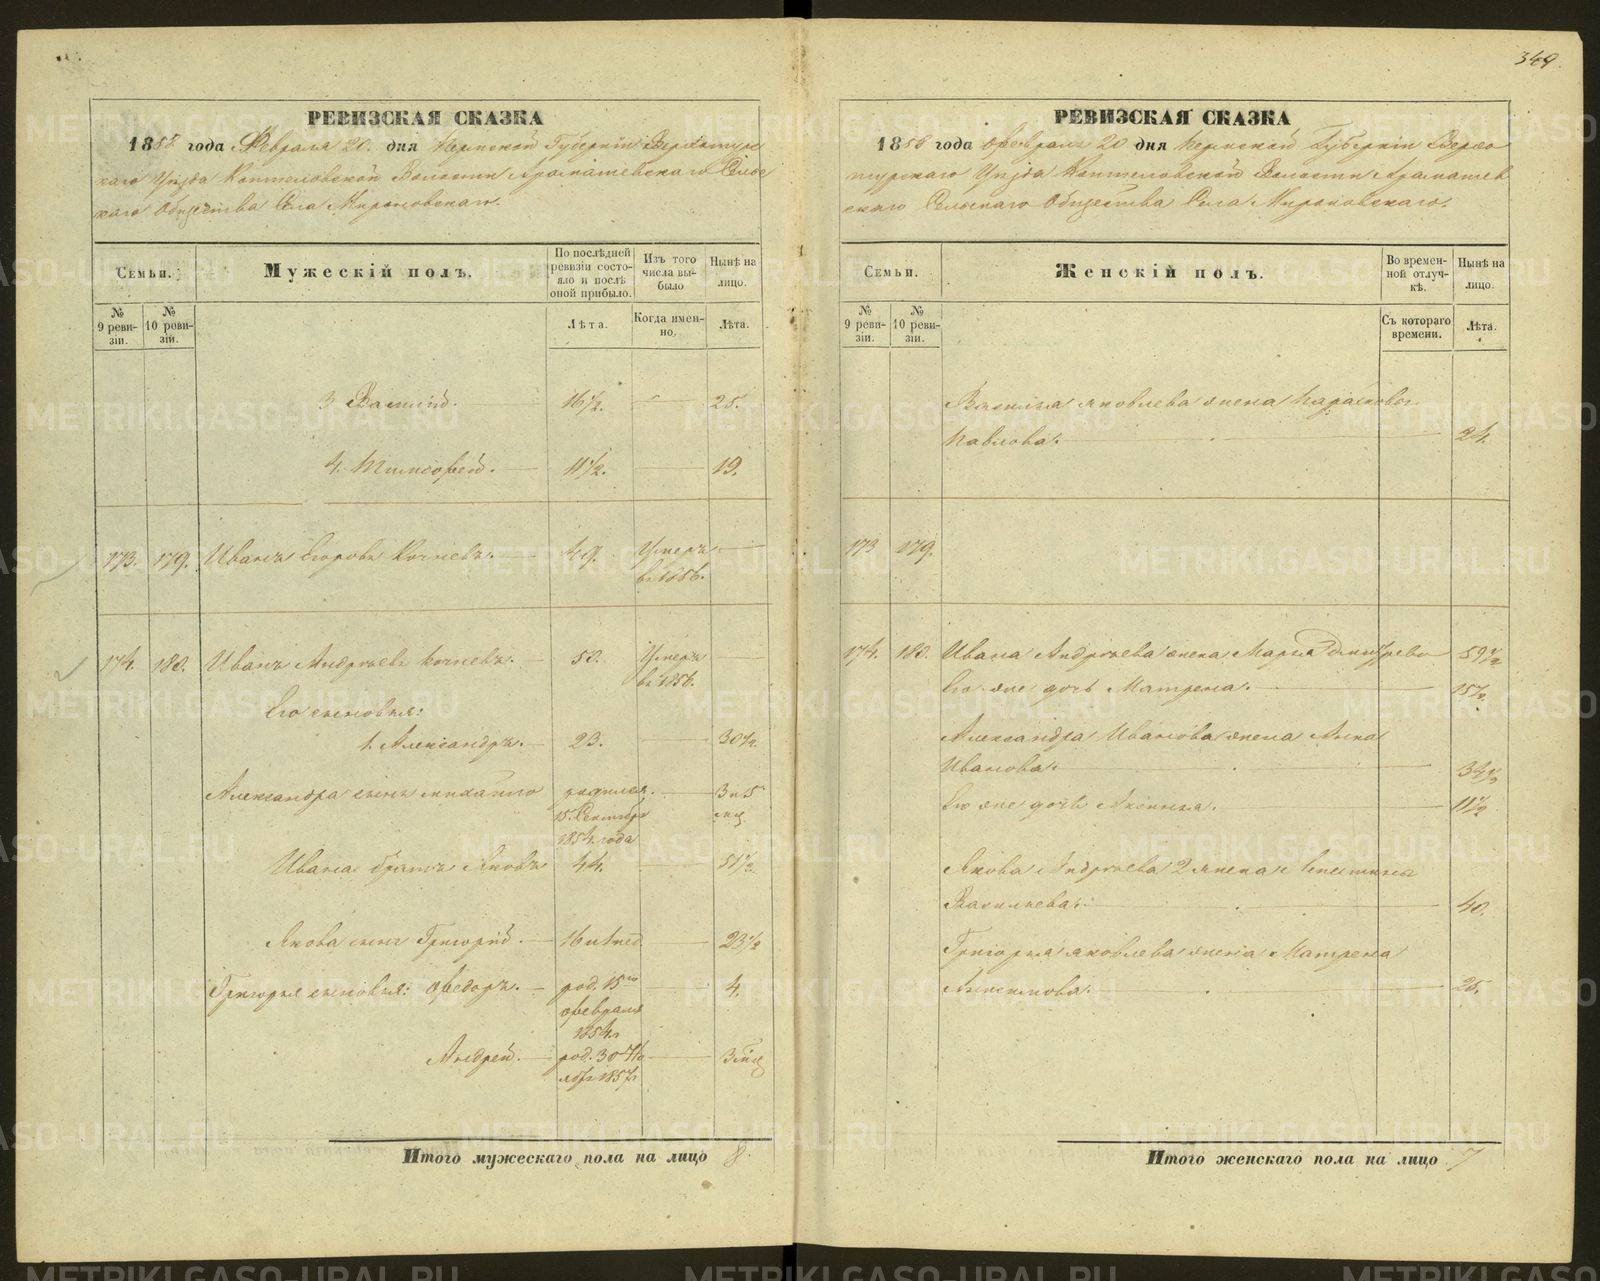 349.
РЕВИЗСКАЯ СКАЗКА
1858 года Февраля 20. дня Пермской Губерніи Верхотур
скаго Уѣзда Коптеловской Волости Арамашевскаго Сельс
каго Общества Села Мироновскаго.
Семьи.
Мужескій полъ.
По послѣдней ревизіи состояло и послѣ оной прибыло.
Изъ того числа выбыло
Нынѣ на лицо.
№ 9 ревизіи.
№ 10 ревизіи.
Лѣта.
Когда именно.
Лѣта.
3 Василій. 16½. 25.
4. Тимофей. 11½. 19.
173. 179. Иванъ Егоровъ Кочневъ. 49. Умеръ
въ 1856.
174. 180. Иванъ Андреевъ Кочневъ. 50. Умеръ
въ 1856.
Его сыновья:
1. Александръ. 23. 30½.
Александра сынъ Михайло родился 3 и 5
15. Сентября мц.
1854. года
Ивана братъ Яковъ 44. 51½.
Якова сынъ Григорій. 23½
Григорья сыновья: Федоръ. род. 15го 4.
февраля
1854.
Андрей. род. 30 3 мѣц
1857
Итого мужескаго пола на лицо 8.
РЕВИЗСКАЯ СКАЗКА
1858 года Февраля 20 дня Пермской Губерніи Верхо
турскаго Уѣзда Коптеловской Волости Арамашев
скаго Сельскаго Общества Села Мироновскаго.
Семьи.
Женскій полъ.
Во временной отлучкѣ.
Нынѣ на лицо.
№ 9 ревизіи.
№ 10 ревизіи.
Съ котораго времени.
Лѣта.
Василья Яковлева жена Парасковья
Павлова. 24.
173 179.
174. 180. Ивана Андреева жена Марья 59½
Его же дочь Матрена. 15½
Александра Иванова жена Анна
Иванова. 34½
Его же дочь Аксинья. 11½
Якова Андреева 2 жена
Васильева. 40.
Григорья Яковлева жена Матрена
25.
Итого женскаго пола на лицо 7
METRIKI.GASO-URAL.RU